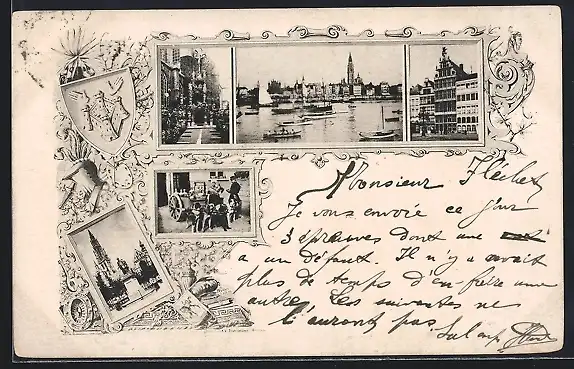 Monsieur
Je vous envoie ce jour
3 épreuves dont une
a un défaut. Il n'y avait
plus de temps d'en faire une
autre. Les suivantes ne
l'auront pas.